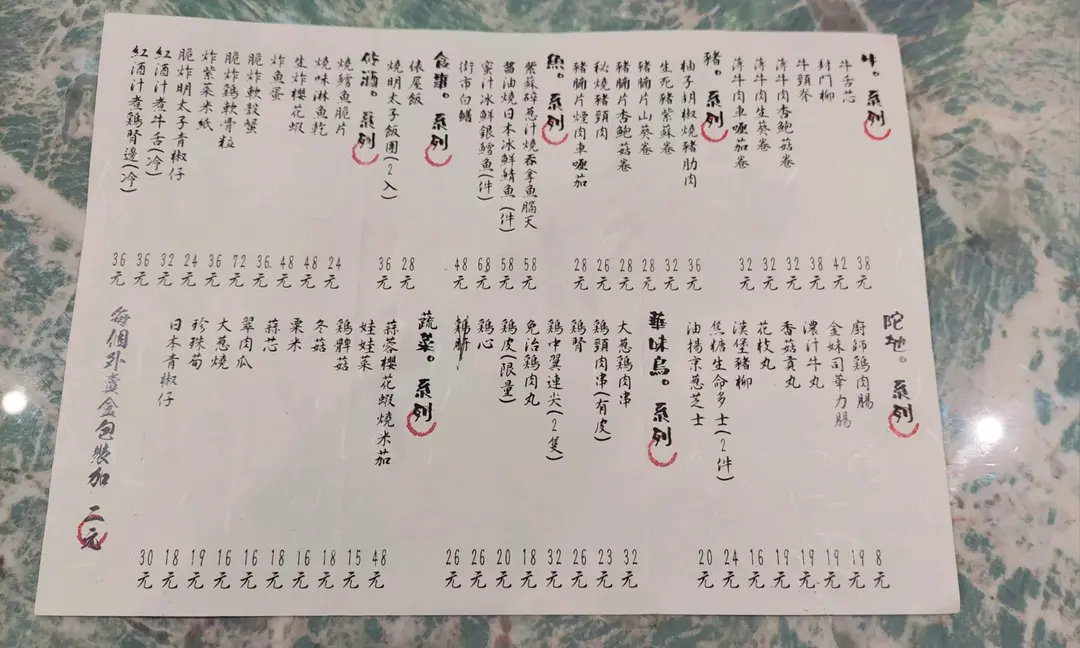 牛。系列
牛舌芯 38元
封門柳 42元
牛頸脊 38元
薄牛肉杏鮑菇卷 32元
薄牛肉生葵卷 32元
薄牛肉車喱茄卷 32元
豬。系列
柚子胡椒燒豬肋肉 36元
生死豬紫蘇卷 32元
豬腩片山葵卷 28元
豬腩片杏鮑菇卷 28元
秘燒豬頸肉 26元
豬腩片煙肉車喱茄 28元
魚。系列
紫蘇碎葱汁燒吞拿魚腦天 58元
醬油燒日本冰鮮鯖魚(件) 58元
蜜汁冰鮮銀鱈魚(件) 68元
街市白鱔 48元
食事。系列
俵屋飯 28元
燒明太子飯團(2入) 36元
伴酒。系列
燒鱈魚脆片 24元
燒味淋魚乾 48元
生炸櫻花蝦 48元
炸魚蛋 36元
脆炸軟殼蟹 72元
脆炸鷄軟骨粒 36元
炸紫菜米紙 24元
脆炸明太子青椒仔 32元
紅酒汁煮牛舌(冷) 36元
紅酒汁煮鷄腎邊(冷) 36元
陀地。系列
廚師鷄肉腸 8元
金妹司華力腸 19元
濃汁牛丸 19元
香菇貢丸 19元
花枝丸 19元
漢堡豬柳 16元
焦糖生命多士(2件) 24元
油揚京葱芝士 20元
華味鳥。系列
大葱鷄肉串 32元
鷄頸肉串(有皮) 23元
鷄腎 26元
鷄中翼連尖(2隻) 32元
免治鷄肉丸 18元
鷄皮(限量) 20元
鷄心 26元
鷄肝 26元
蔬菜。系列
蒜蓉櫻花蝦燒米茄 48元
娃娃菜 15元
鷄髀菇 18元
冬菇 16元
粟米 18元
蒜芯 16元
翠肉瓜 16元
大葱燒 19元
珍珠筍 18元
日本青椒仔 30元
每個外賣盒包裝加 二元